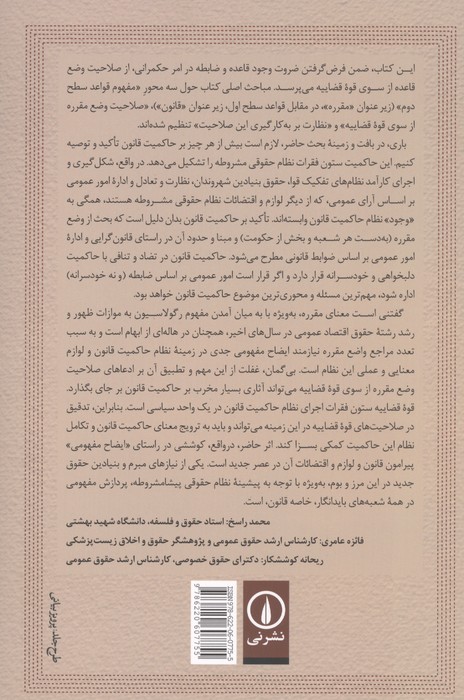 این کتاب، ضمن فرض‌گرفتن ضروت وجود قاعده و ضابطه در امر حکمرانی، از صلاحیت وضع
قاعده از سوی قوهٔ قضاییه می‌پرسد. مباحث اصلی کتاب حول سه محورِ «مفهوم قواعد سطح
دوم» (زیر عنوان «مقرره»، در مقابل قواعد سطح اول، زیر عنوان «قانون»)، «صلاحیت وضع مقرره
از سوی قوهٔ قضاییه» و «نظارت بر به‌کارگیری این صلاحیت» تنظیم شده‌اند.
باری، در بافت و زمینهٔ بحث حاضر، لازم است بیش از هر چیز بر حاکمیت قانون تأکید و توصیه
کنیم. این حاکمیت ستون فقرات نظام حقوقی مشروطه را تشکیل می‌دهد. در واقع، شکل‌گیری و
اجرای کارآمد نظام‌های تفکیک قوا، حقوق بنیادین شهروندان، نظارت و تعادل و ادارهٔ امور عمومی
بر اساس آرای عمومی، که از دیگر لوازم و اقتضائات نظام حقوقی مشروطه هستند، همگی به
«وجود» نظام حاکمیت قانون وابسته‌اند. تأکید بر حاکمیت قانون بدان دلیل است که بحث از وضع
مقرره (به‌دست هر شعبه و بخش از حکومت) و مبنا و حدود آن در راستای قانون‌گرایی و ادارهٔ
امور عمومی بر اساس ضوابط قانونی مطرح می‌شود. حاکمیت قانون در تضاد و تنافی با حاکمیت
دلبخواهی و خودسرانه قرار دارد و اگر قرار است امور عمومی بر اساس ضابطه (و نه خودسرانه)
اداره شود، مهم‌ترین مسئله و محوری‌ترین موضوع حاکمیت قانون خواهد بود.
گفتنی است معنای مقرره، به‌ویژه با به میان آمدن مفهوم رگولاسیون به موازات ظهور و
رشد رشتهٔ حقوق اقتصاد عمومی در سال‌های اخیر، همچنان در هاله‌ای از ابهام است و به سبب
تعدد مراجع واضع مقرره نیازمند ایضاح مفهومی جدی در زمینهٔ نظام حاکمیت قانون و لوازم
معنایی و عملی این نظام است. بی‌گمان، غفلت از این مهم و تطبیق آن بر ادعاهای صلاحیت
وضع مقرره از سوی قوهٔ قضاییه می‌تواند آثاری بسیار مخرب بر حاکمیت قانون بر جای بگذارد.
قوهٔ قضاییه ستون فقرات اجرای نظام حاکمیت قانون در یک واحد سیاسی است. بنابراین، تدقیق
در صلاحیت‌های قوهٔ قضاییه در این زمینه می‌تواند و باید به ترویج معنای حاکمیت قانون و تکامل
نظام این حاکمیت کمکی بسزا کند. اثر حاضر، درواقع، کوششی در راستای «ایضاح مفهومی»
پیرامون قانون و لوازم و اقتضائات آن در عصر جدید است. یکی از نیازهای مبرم و بنیادین حقوق
جدید در این مرز و بوم، به‌ویژه با توجه به پیشینهٔ نظام حقوقی پیشامشروطه، پردازش مفهومی
در همهٔ شعبه‌های بایدانگار، خاصه قانون، است.
محمد راسخ: استاد حقوق و فلسفه، دانشگاه شهید بهشتی
فائزه عامری: کارشناس ارشد حقوق عمومی و پژوهشگر حقوق و اخلاق زیست‌پزشکی
ریحانه کوششکار: دکترای حقوق خصوصی، کارشناس ارشد حقوق عمومی
نشر نی
ISBN 978-622-06-0775-5
9786220607755
طرح جلد: پرویز بیانی